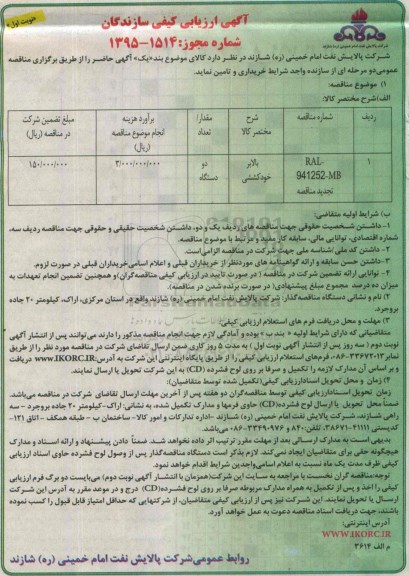 نوبت اول
آگهی ارزیابی کیفی سازندگان
شماره مجوز: ۱۵۱۴-۱۳۹۵
شرکت پالایش نفت امام خمینی (ره) شازند در نظر دارد کالای موضوع بند «یک» آگهی حاضر را از طریق برگزاری مناقصه
عمومی دو مرحله ای از سازنده واجد شرایط خریداری و تامین نماید.
۱) موضوع مناقصه:
الف) شرح مختصر کالا:
ردیف
شماره مناقصه
شرح مختصر کالا
مقدار/ تعداد
برآورد هزینه انجام موضوع مناقصه (ریال)
مبلغ تضمین شرکت در مناقصه (ریال)
۱
RAL-941252-MB تجدید مناقصه
بالابر خودکششی
دو دستگاه
۳/۰۰۰/۰۰۰/۰۰۰
۱۵۰/۰۰۰/۰۰۰
ب) شرایط اولیه متقاضی:
۱- داشتن شخصیت حقوقی جهت مناقصه های ردیف یک و دو، داشتن شخصیت حقیقی و حقوقی جهت مناقصه ردیف سه،
شماره اقتصادی، توانایی مالی، سابقه کار مفید و مرتبط با موضوع مناقصه.
۲- داشتن کد ملی/شناسه ملی جهت شرکت در مناقصه الزامی است.
۳- داشتن حسن سابقه و ارائه گواهینامه های موردنظر از خریداران قبلی و اعلام اسامی خریداران قبلی در صورت لزوم.
۴- توانایی ارائه تضمین شرکت در مناقصه (در صورت تایید در ارزیابی کیفی مناقصه گران) و همچنین تضمین انجام تعهدات به
میزان ده درصد مجموع مبلغ پیشنهادی (در صورت برنده شدن در مناقصه).
۲) نام و نشانی دستگاه مناقصه گذار: شرکت پالایش نفت امام خمینی (ره) شازند واقع در استان مرکزی، اراک، کیلومتر ۲۰ جاده
بروجرد.
۳) مهلت و محل دریافت فرم های استعلام ارزیابی کیفی:
متقاضیانی که دارای شرایط اولیه «بند ب» بوده و آمادگی لازم جهت انجام مناقصه مذکور را دارند می توانند پس از انتشار آگهی
نوبت دوم (سه روز پس از انتشار آگهی نوبت اول) به مدت ۵ روز کاری ضمن ارسال تقاضای شرکت در مناقصه مورد نظر را از طریق
نمابر ۳۳۶۷۲۰۱۳-۰۸۶، فرم های استعلام ارزیابی کیفی را از طریق پایگاه اینترنتی این شرکت به آدرس: WWW.IKORC.IR دریافت
و بر اساس آن مدارک لازمه را تکمیل و صرفا بر روی لوح فشرده (CD) به این شرکت تحویل یا ارسال نمایند.
۴) زمان و محل تحویل اسناد ارزیابی کیفی (تکمیل شده توسط متقاضیان):
زمان تحویل اسناد ارزیابی کیفی توسط مناقصه گران دو هفته پس از آخرین مهلت ارسال تقاضای شرکت در مناقصه می باشد.
ضمناً محل تحویل یا ارسال لوح فشرده (CD) حاوی فرمها و مدارک تکمیل شده، به نشانی: اراک-کیلومتر ۲۰ جاده بروجرد - سه
راهی شازند، شرکت پالایش نفت امام خمینی (ره) شازند -اداره تدارکات و امور کالا- ساختمان ب - طبقه همکف - اتاق ۱۲۱-
کدپستی ۴۱۱۱۱-۳۸۶۷۱، تلفن: ۸۴۰ و ۳۳۴۹۰۹۷۶-۰۸۶ می باشد.
بدیهی است به مدارک ارسالی بعد از مهلت مقرر ترتیب اثر داده نخواهد شد. ضمناً دادن پیشنهاد و ارائه اسناد و مدارک
هیچگونه حقی برای متقاضیان ایجاد نمی کند. لازم بذکر است دستگاه مناقصه گذار پس از وصول لوح فشرده حاوی اسناد ارزیابی
کیفی ظرف مدت یک ماه نسبت به اعلام اسامی واجدین شرایط اقدام خواهد نمود.
توجه: مناقصه گران نخست با مراجعه به سایت این شرکت (همزمان با انتشار آگهی نوبت دوم) می بایست دو برگ فرم ارزیابی
کیفی را اخذ و پس از تکمیل به همراه مدارک مربوطه صرفا بر روی لوح فشرده (CD) درج و در موعد مقرر به آدرس این شرکت
ارسال یا تحویل نمایند. این شرکت نیز پس از ارزیابی کیفی متقاضیان، از شرکتهایی که حداقل امتیاز قابل قبول را کسب نموده
باشند، جهت دریافت اسناد مناقصه دعوت به عمل خواهد آورد.
آدرس اینترنتی:
WWW.IKORC.IR
م الف ۳۶۱۴
روابط عمومی شرکت پالایش نفت امام خمینی (ره) شازند